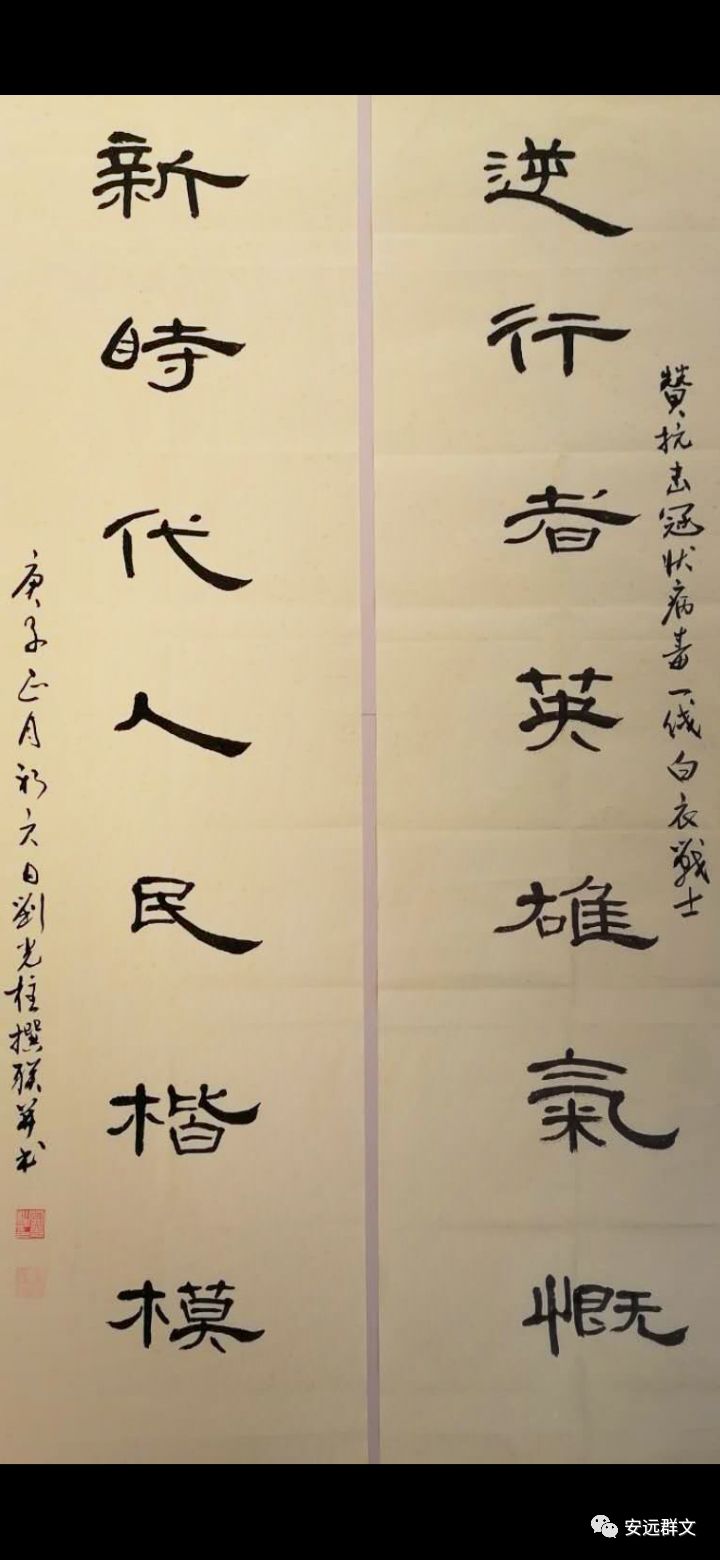 贊抗击冠状病毒一线白衣戰士
逆行者英雄氣慨
新時代人民楷模
庚子正月初六日劉光柱撰联并书
安远群文